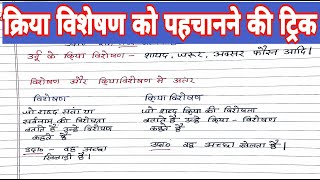 क्रिया विशेषण को पहचानने की ट्रिक
उर्दू के क्रिया विशेषण - शायद, जरूर, अक्सर फौरन आदि।
विशेषण और क्रियाविशेषण में अंतर
विशेषण
क्रिया विशेषण
जो शब्द संज्ञा या
सर्वनाम की विशेषता
बताते हैं उन्हें विशेषण
कहते हैं
जो शब्द क्रिया की विशेषता
बताते हैं उन्हें क्रिया-विशेषण
कहते हैं
उदा०- वह अच्छा
खिलाड़ी है।
उदा० वह अच्छा खेलता है।